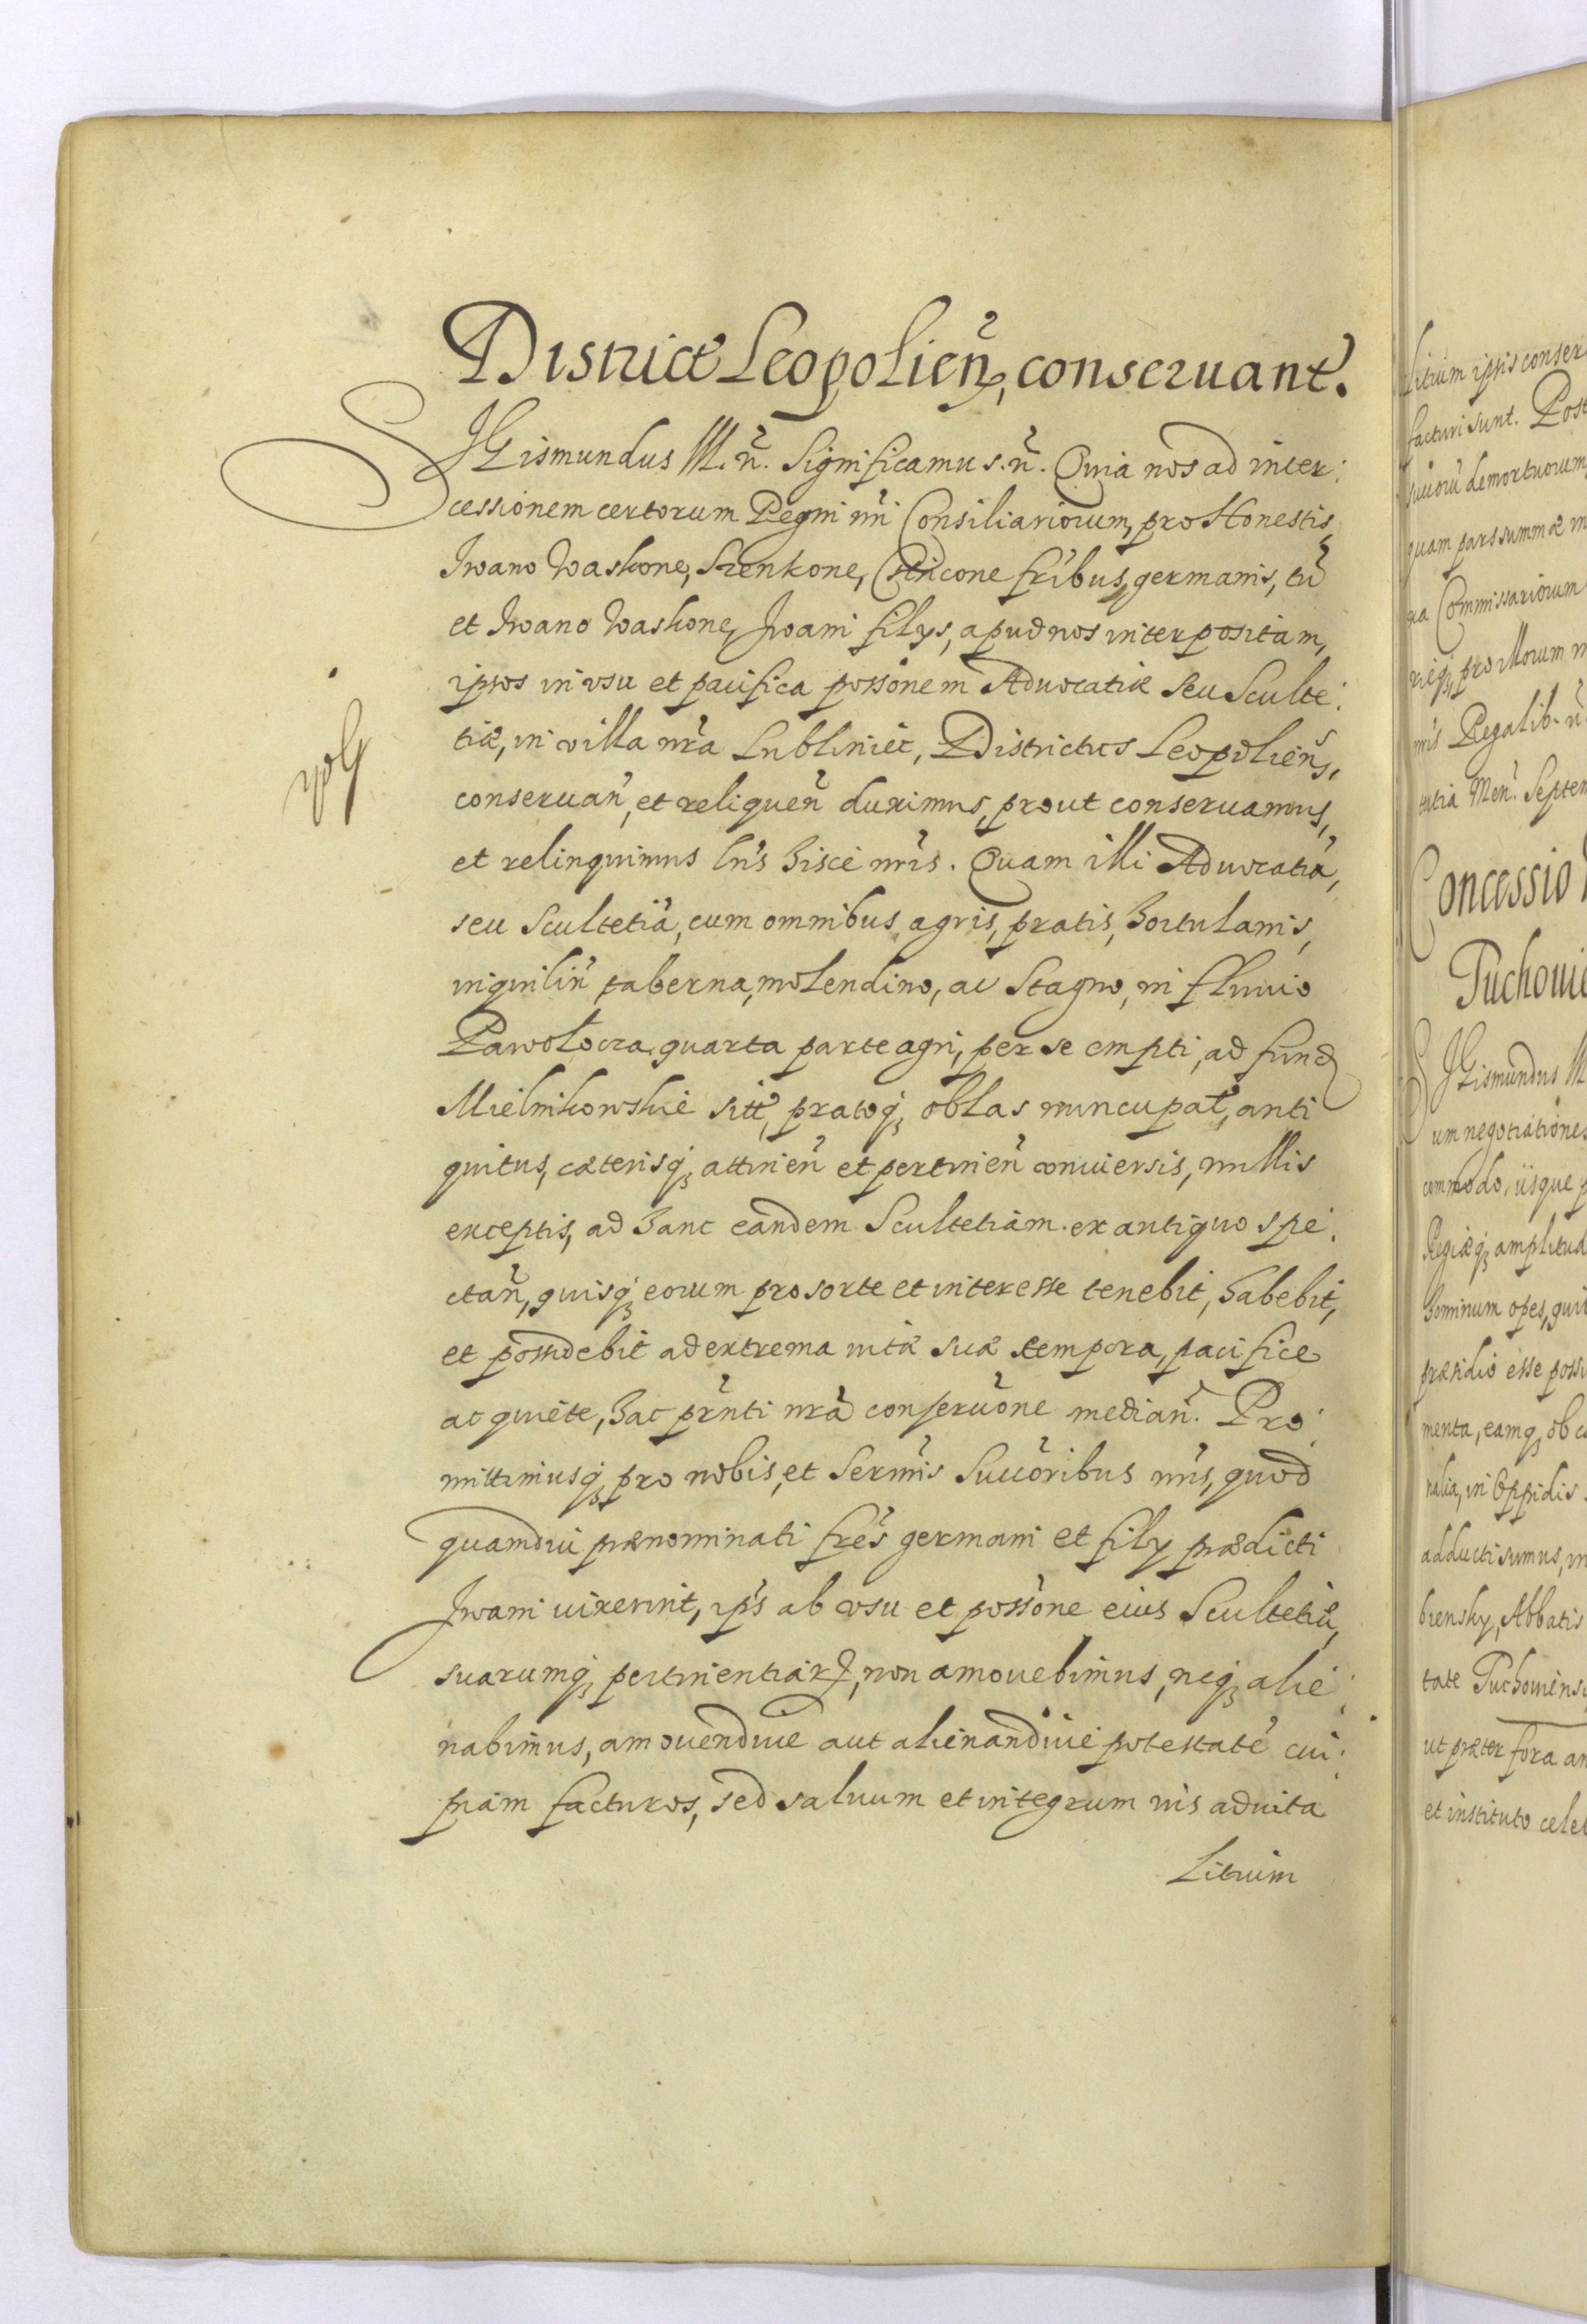 District Leopolien, conseruant.
SIGismundus III. ñ. Significamus. ñ. Quia nos ad inter:
cessionem certorum Regni nri Consiliariorum, pro Honestis
Iwano Waskone, Szenkone, fribus, germanis, tũ
et Iwano Waskone, Iwani filys, apud nos interpositam,
ipsos in vsu et pacifica possonem Aduocatiæ seu Sculte:
tiæ, in villa nra Lubliniec, Districtus Leopolien̄s,
conseruan̄, et relinquen̄ duximus, prout conseruamus,
et relinquimus lris hisce nris. Quam illi Aduocatiã,
seu Scultetiã, cum omnibus agris, pratis, hortulanis,
inquilin̄ taberna, molendino, ac Stagno, in fluuio
quarta parte agri, per se empti, ad fund
Mielnikowskie sitt, pratoq, oblas nuncupat, anti
quitus, cæterisq, attinen̄ et pertinen̄ vniuersis, nullis
exceptis, ad hanc eandem Scultetiam ex antiquo spe:
ctan̄, quisq eorum pro sorte et interesse tenebit, habebit,
et possidebit ad extrema vitæ suæ tempora, pacifice
ac quiete, hac prñti nrã conseruõne median̄. Pro:
mittimusq, pro nobis, et Sermis Succõribus nris, quod
quamdiu prænominati fres germani et fily prædicti
Iwani vixerint, ips ab vsu et possone eius Scultetiæ,
suarumq, pertinentiar, non amouebimus, neq, alie:
nabimus, amouendiue aut alienandiue potestatẽ cui:
piam facturos, sed saluum et integrum ius aduita
Litium
Litium ipsis conser
facturi sunt. Post
demortuorum
quam pars summæ
Commissariorum
pro illorum
nris Regalib. ñ
tertia Men. Septem
Concessio
Puchouie
SIGismundus III
um negotiationes
commodo, iisque p
Regiæq, amplitud
hominum opes, quib
præsidio esse possu
menta, eamq, ob c
nalia, in Oppidis
adducti sumus, in
biensky, Abbatis
tate Puchouiensi
ut præter fora an
et instituto celeb